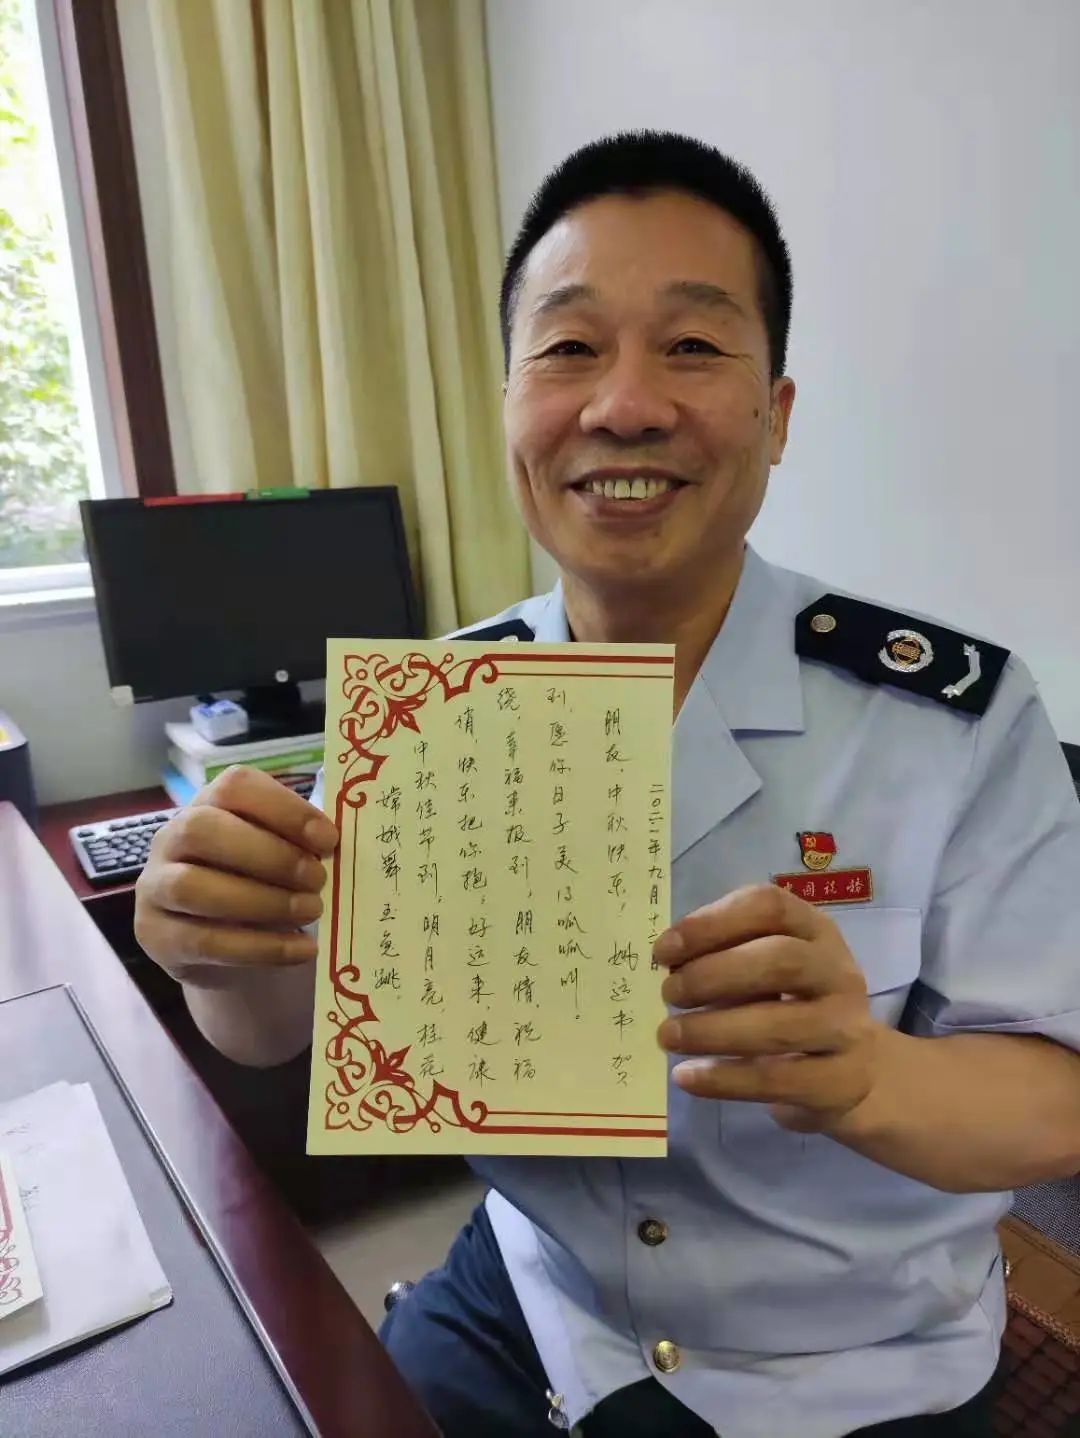 嫦娥舞,玉兔跳,
中秋佳节到,明月亮,桂花
俏,快乐把你抱,好运来,健康
绕,幸福来报到,朋友情,祝福
到,愿你日子美得呱呱叫。
朋友,中秋快乐!姚运书 贺
二〇二一年九月十二日
中国税务